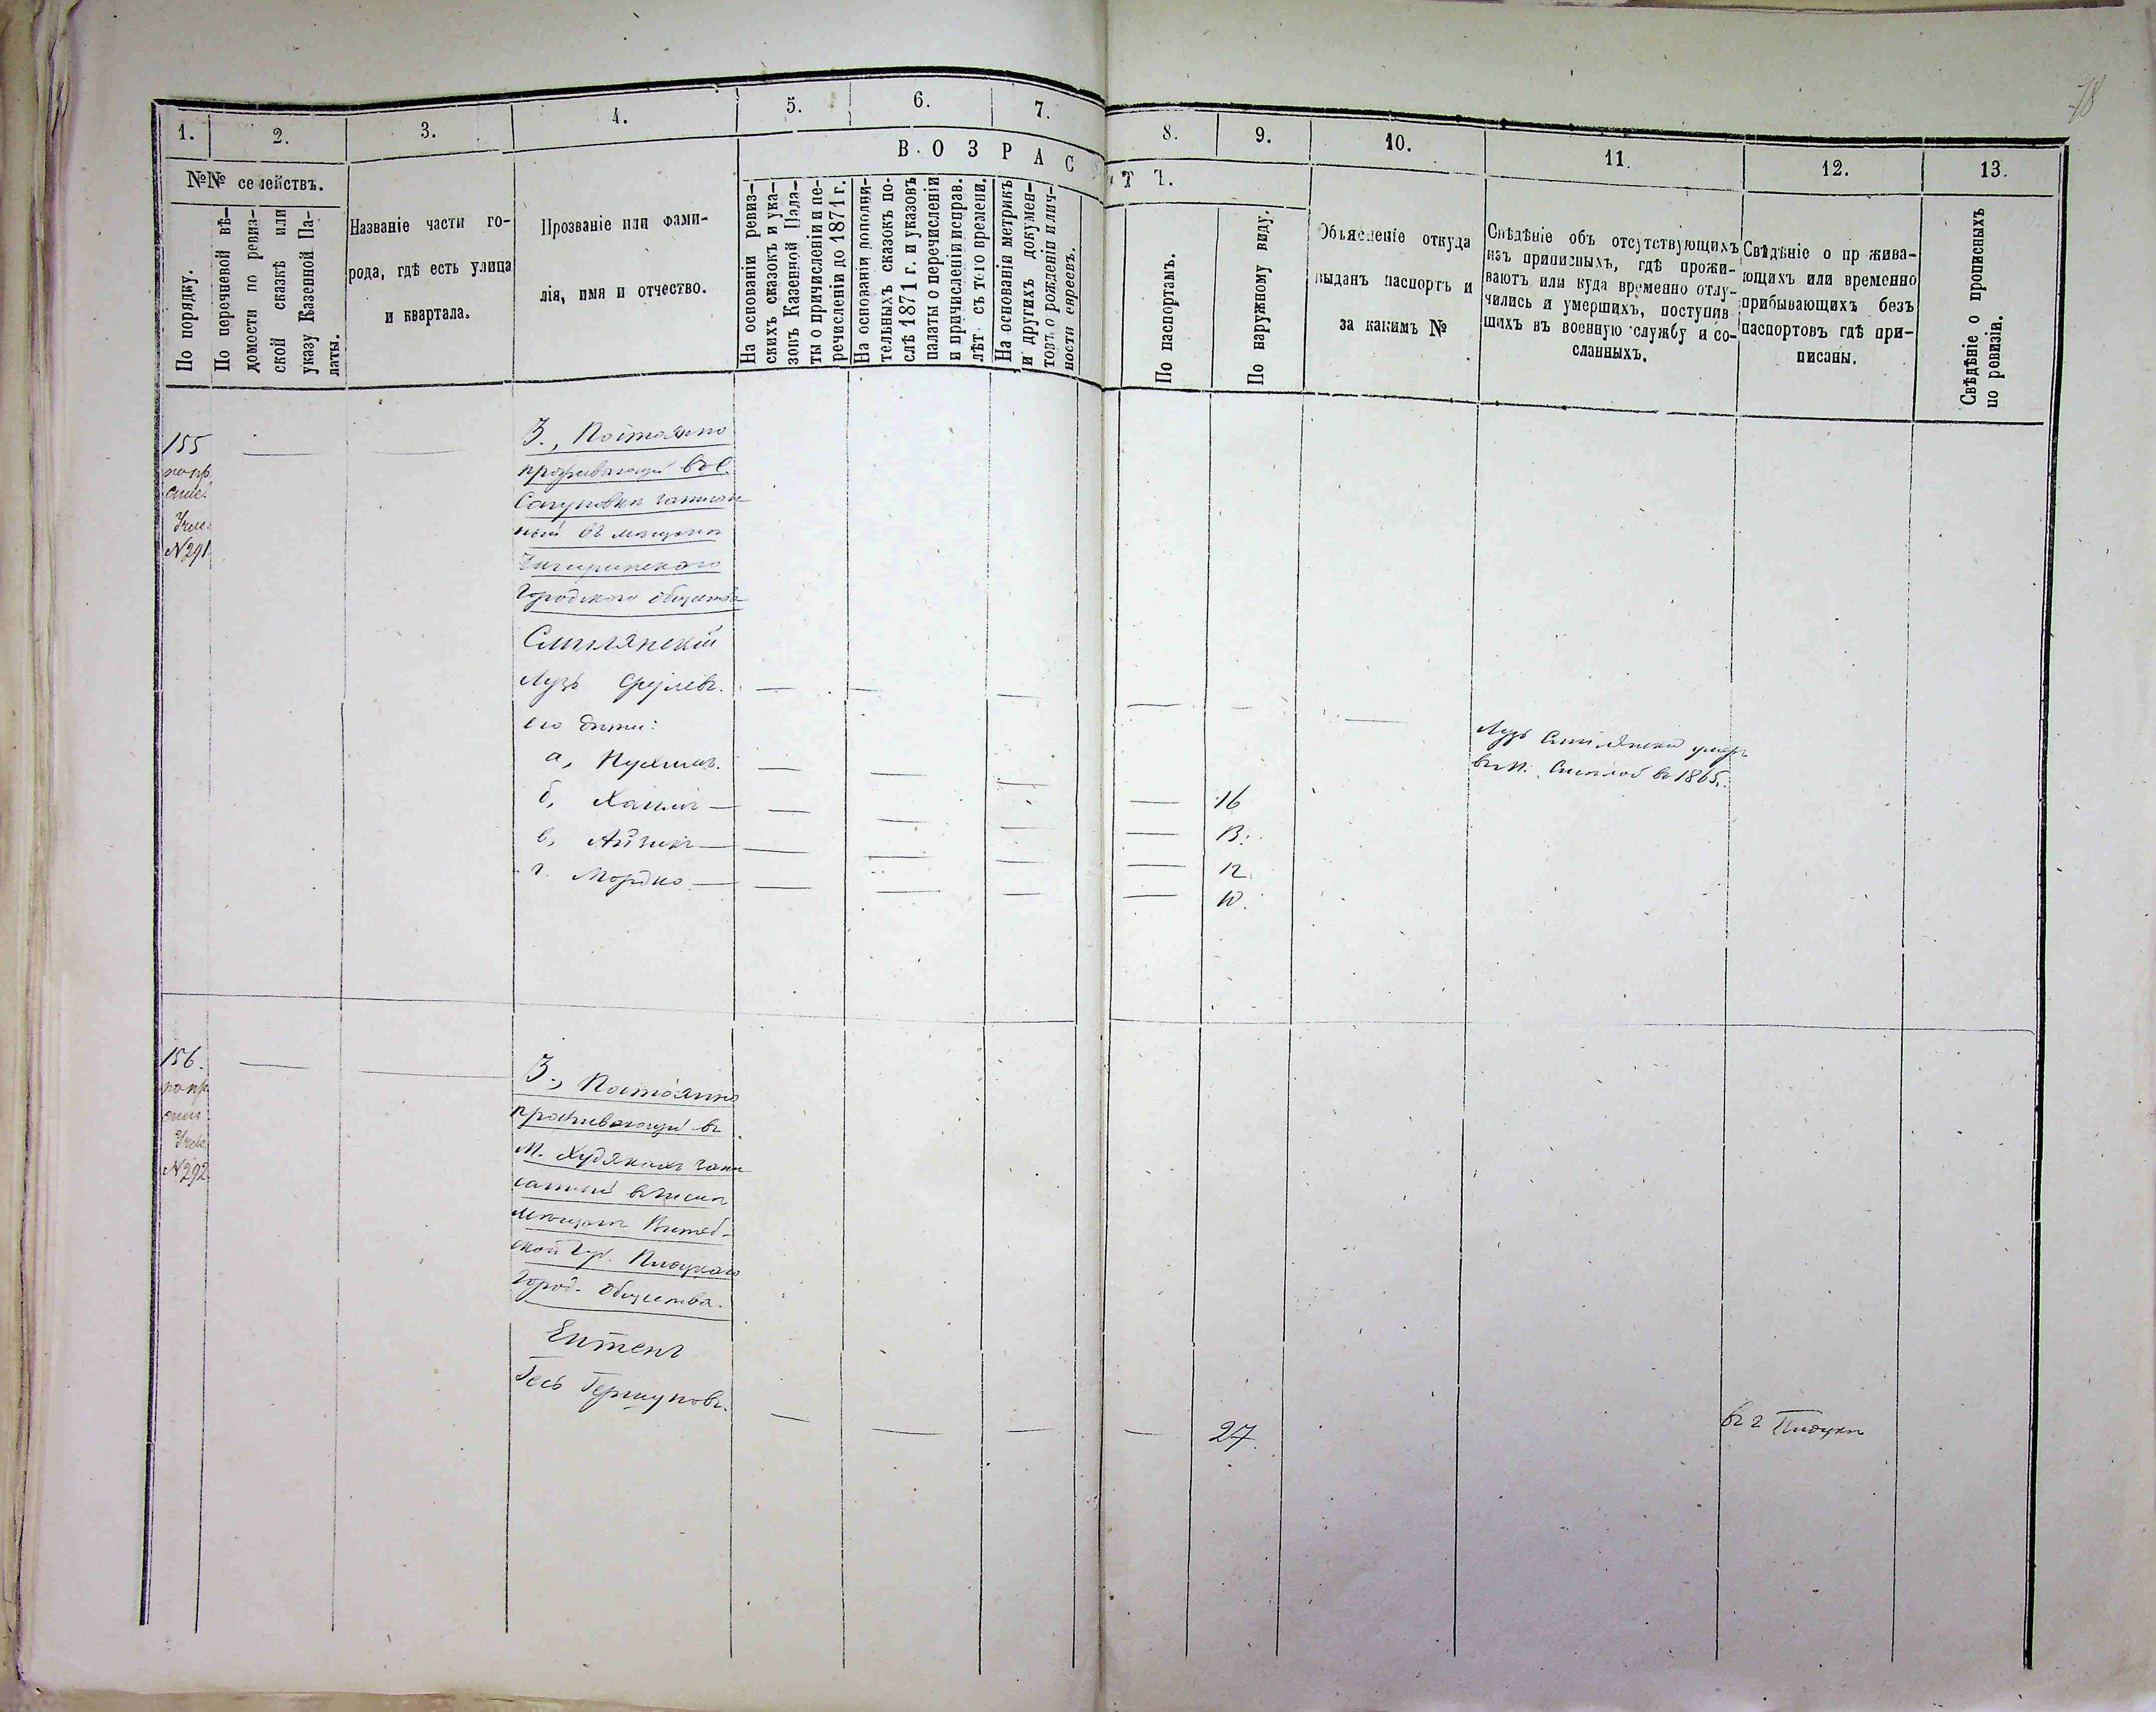 78
1.
2.
3.
4.
5.
6.
7.
8.
9.
10.
11.
12.
13.
№№ семействъ.
В О З Р А С Т Ъ.
По порядку.
По перечневой вѣ-
домости по ревиз-
ской сказкѣ или
указу Казенной Па-
латы.
Названіе части го-
рода, гдѣ есть улица
и квартала.
Прозваніе или фами-
лія, имя и отчество.
На основаніи ревиз-
скихъ сказокъ и ука-
зовъ Казенной Пала-
ты о причисленіи и пе-
речисленіи до 1871 г.
На основаніи дополни-
тельныхъ сказокъ по-
слѣ 1871 г. и указовъ
палаты о перечисленіи
и причисленіи исправ.
лѣт съ того времени.
На основаніи метрикъ
и другихъ докумен-
товъ о рожденіи и лич-
ности евреевъ.
По паспортамъ.
По наружному виду.
Объясненіе откуда
выданъ паспортъ и
за какимъ №
Свѣдѣніе объ отсутствующихъ
изъ приписныхъ, гдѣ прожи-
ваютъ или куда временно отлу-
чились и умершихъ, поступив
шихъ въ военную службу и со-
сланныхъ.
Свѣдѣніе о пр жива-
ющихъ или временно
прибывающихъ безъ
паспортовъ гдѣ при-
писаны.
Свѣдѣніе о прописныхъ
по ревизіи.
155
по пр.
№291
3., Постоянно
проживающій въ с.
Сагуновкѣ записан
ный въ мѣщане
Чигиринскаго
Городского общества
Смилянскій
Лузъ Срулевъ.
его дѣти:
Лузъ Смилянскій умеръ
въ м. Смѣлой въ 1865.
а, —
16
б, Хаимъ —
13.
в, Айзикъ —
12
г. Мордко —
10.
156.
по пр.
№292.
3., Постоянно
проживающій въ
м. Худякахъ запи
санный въ число
мѣщанъ Витеб-
ской Губ.
Город. Общества.
Ентенъ
Гесъ Гершуновъ.
27.
въ г